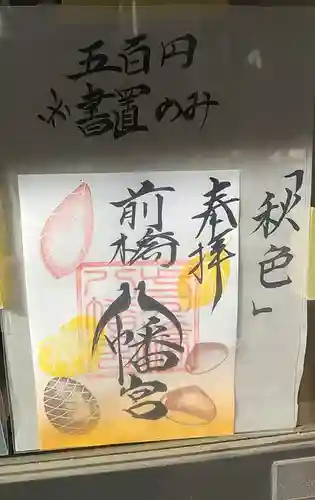 五百円
※書置のみ
「秋色」
奉拝
前橋
八幡宮